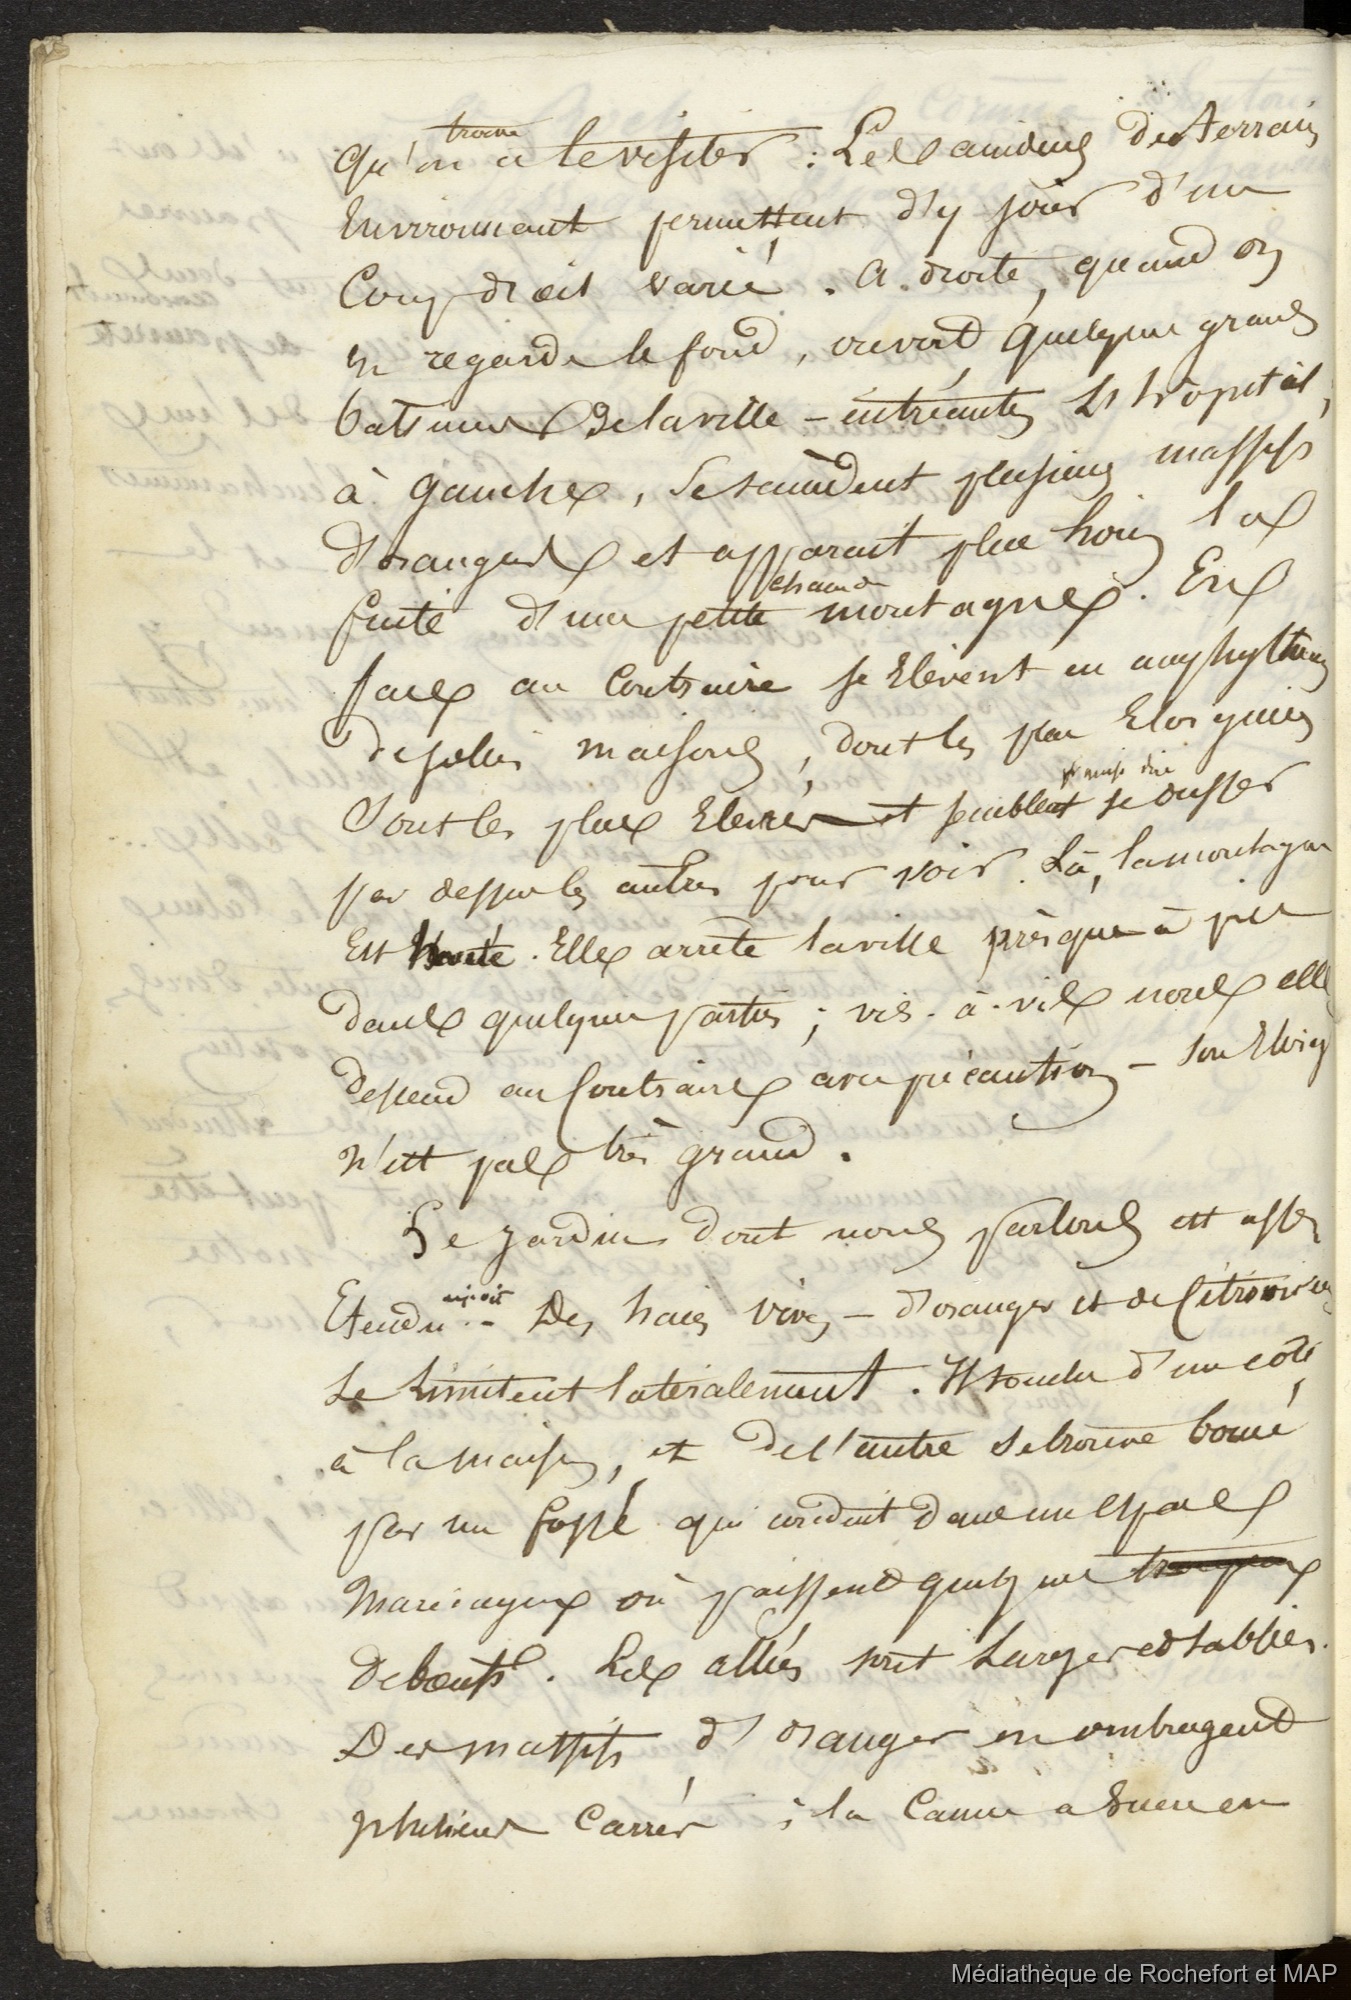 trouve
qu'on a le visiter. Les accidens des terrains
Environnant permettent d'y jouir d'un
Coup d'œil varié. A droite, quand on
en regarde le fond, on voit quelques grands
batimens de la ville – entr'autres L'hôpital,
à gauche, s'etendent plusieurs massifs
d'orangers et apparait plus loin la
chaine de
fuite d'une petite montagnes. En
face au contraire se Elèvent en amphythéatre
de jolies maisons, dont les plus Eloignées
puis dire
sont les plus Elevées et semblent se ousser
par dessus les autres pour voir. Là, la montagne
Est haute. Elle arrête la ville presque à pic
dans quelques parties ; vis-à-vis nous elle
descend au Contraire avec précaution – son Eloig
n'est pas très grand.
Le jardin dont nous parlons est assez
Etendu. – Des haies vives – d'oranger et de Citronniers
Le Limitent latéralement. Il touche d'un coté
à la maison, et de l'autre se trouve borné
par un fossé qui conduit dans un espace
Marécageux où paissent quelques troupeaux
de bœufs. Les allées sont Larges et sablées.
Des massifs d'oranger en ombragent
plusieurs Carrés ; la Canne a Sucre en
Médiathèque de Rochefort et MAP